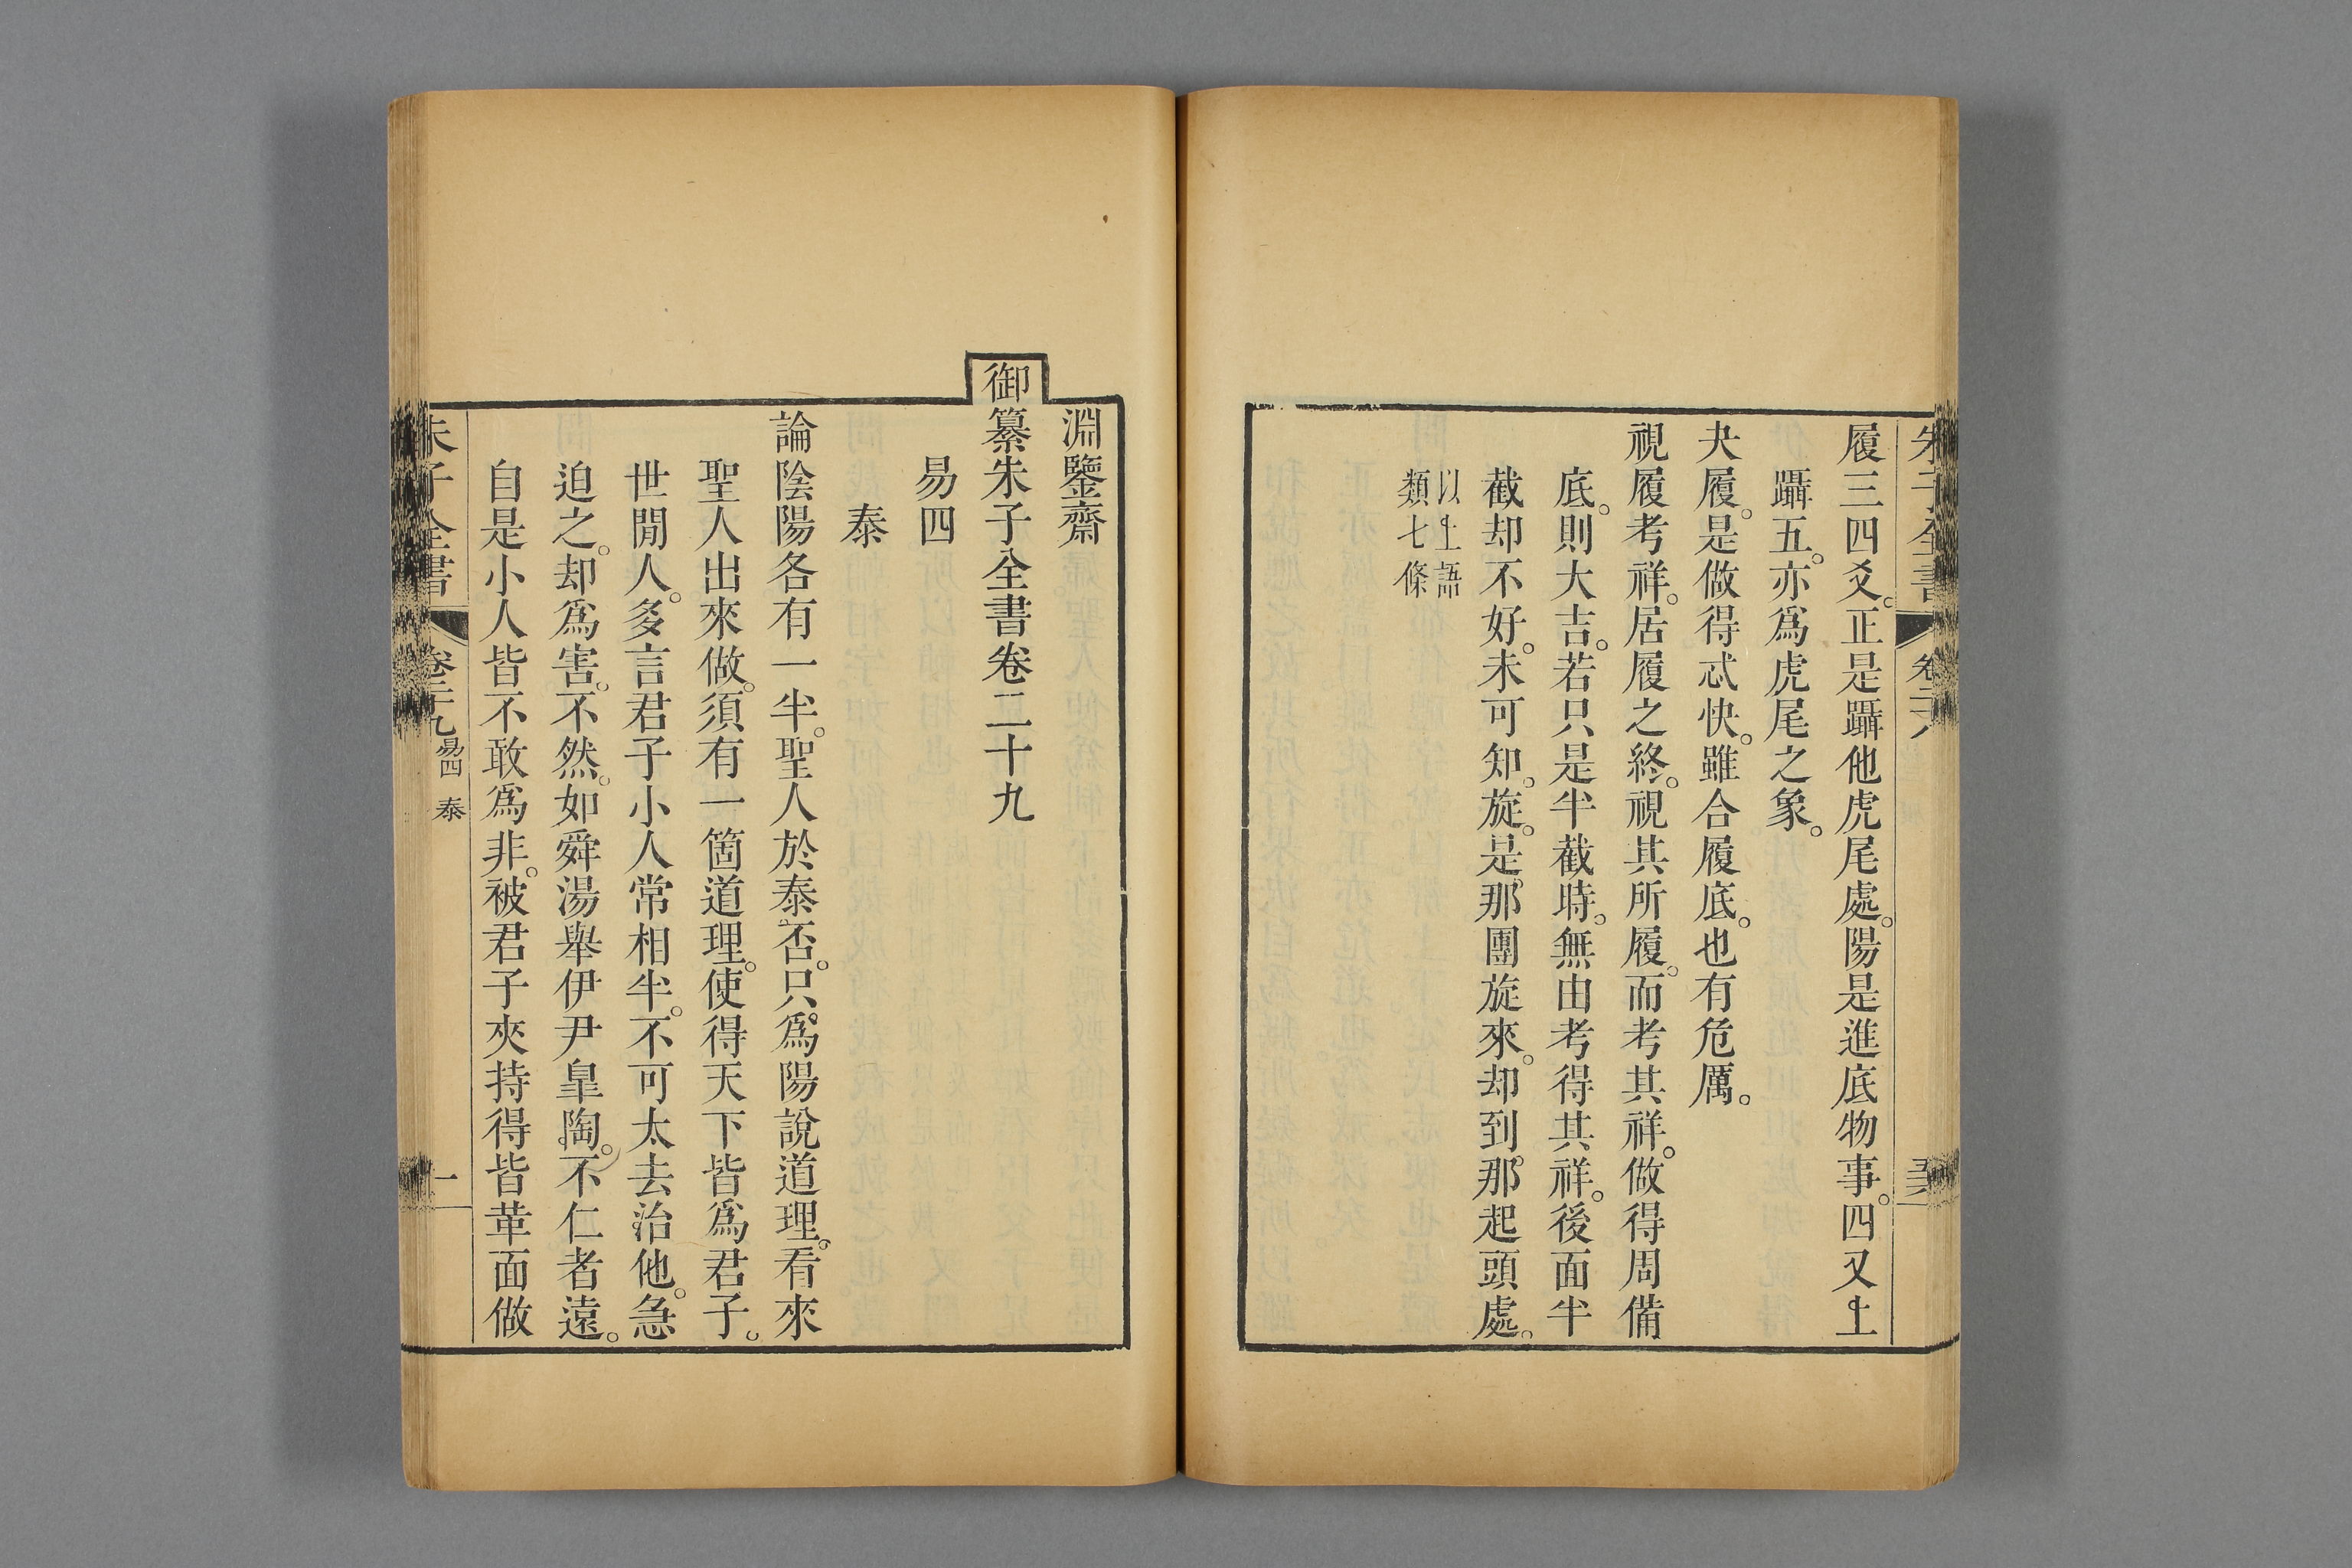 履三四爻。正是躡他虎尾處。陽是進底物事。四又上
躡五。亦爲虎尾之象。
夬履。是做得忒快。雖合履底。也有危厲。
視履考祥。居履之終。視其所履。而考其祥。做得周備
底。則大吉。若只是半截時。無由考得其祥。後面半
截却不好。未可知。旋。是那團旋來。却到那起頭處。
以上語
類七條
淵鑒齋
御纂朱子全書卷二十九
易四
泰
論陰陽各有一半。聖人於泰否。只爲陽說道理。看來
聖人出來做。須有一箇道理。使得天下皆爲君子。
世閒人。多言君子小人常相半。不可太去治他。急
迫之。却爲害。不然。如舜湯舉伊尹皐陶。不仁者遠。
自是小人皆不敢爲非。被君子夾持得皆革面做
朱子全書 卷二十九 易四 泰 一